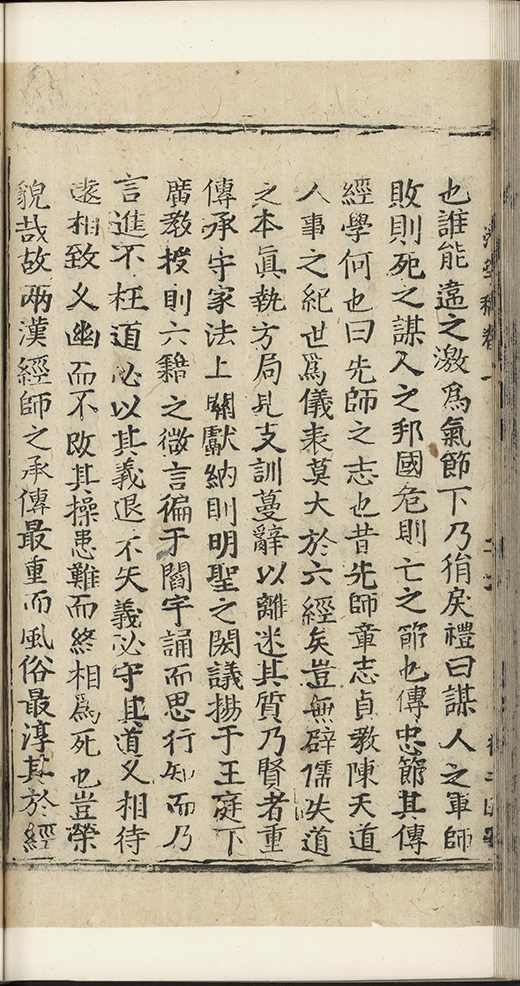 也誰能遠之激爲氣節下乃狷戾禮曰謀人之軍師
敗則死之謀人之邦國危則亡之節也傳忠節其傳
經學何也曰先師之志也昔先師章志貞教陳天道
人事之紀世爲儀表莫大於六經矣豈無辟儒失道
之本眞執方局見支訓蔓辭以離迷其質乃賢者重
傳承守家法上關獻納則明聖之閎議揚于王庭下
廣教授則六籍之微言徧于閻宇誦而思行知而乃
言進不枉道必以其義退不失義必守其道又相待
遠相致又幽而不改其操患難而終相爲死也豈榮
貌哉故兩漢經師之承傳最重而風俗最淳其於經